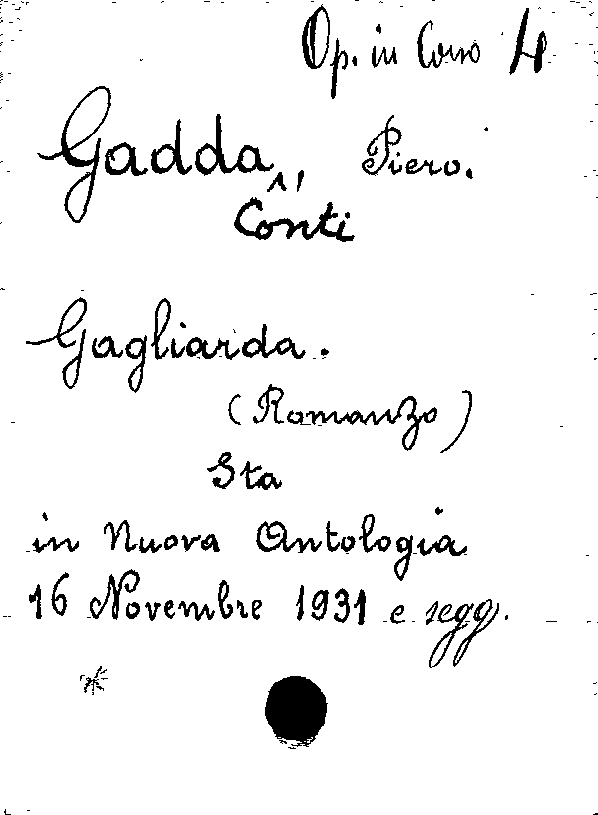 Op. in Corso 4
Gadda, Piero.
Conti
Gagliarda.
(Romanzo)
Sta
in Nuova Antologia
16 Novembre 1931 e segg.